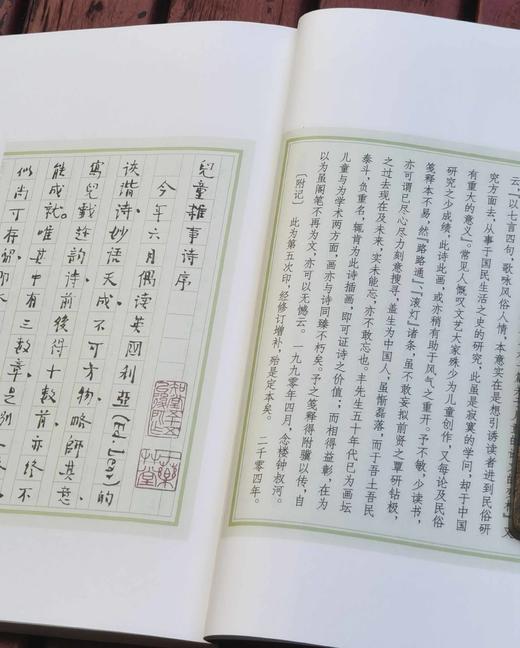 云「以七言四句，歌咏风俗人情，本意实在是想引诱读者进到民俗研
究方面去，从事于国民生活之史的研究，此虽是寂寞的学问，却于中国
有重大的意义」。常见人慨叹文艺大家殊少为儿童创作，又每论及民俗
研究之少成绩，此诗此画，或亦稍有助于风气之重开。予不敏，少读书，
笺释本不易，然『路路通』、『滚灯』诸条，虽不敢妄拟前贤之覃研钻极，
亦可谓已尽心尽力刻意搜寻，盖生为中国人，虽惭磊落，而于吾土吾民
之过去现在及未来，实未能忘，亦不敢忘也。丰先生五十年代已为画坛
泰斗，负重名，辄肯为此诗插画，即可证诗之价值；而相得益彰，在为
儿童与为学术两方面，画亦与诗同臻不朽矣。予之笺释得附骥以传，自
以为虽阁笔不再为文，亦可以无憾云。一九九〇年四月，念楼钟叔河。
〔附记〕 此为第五次印，经修订增补，殆是定本矣。 二千零四年。
兒童雜事詩序
今年六月偶读英國利亞(Ed. Lear)的
诙谐诗，妙语天成，不可方物，略師其意
寫兒戲趁韵诗，前後得十數首，亦终不
能成就。唯其中有三數章，是别一
似尚可存